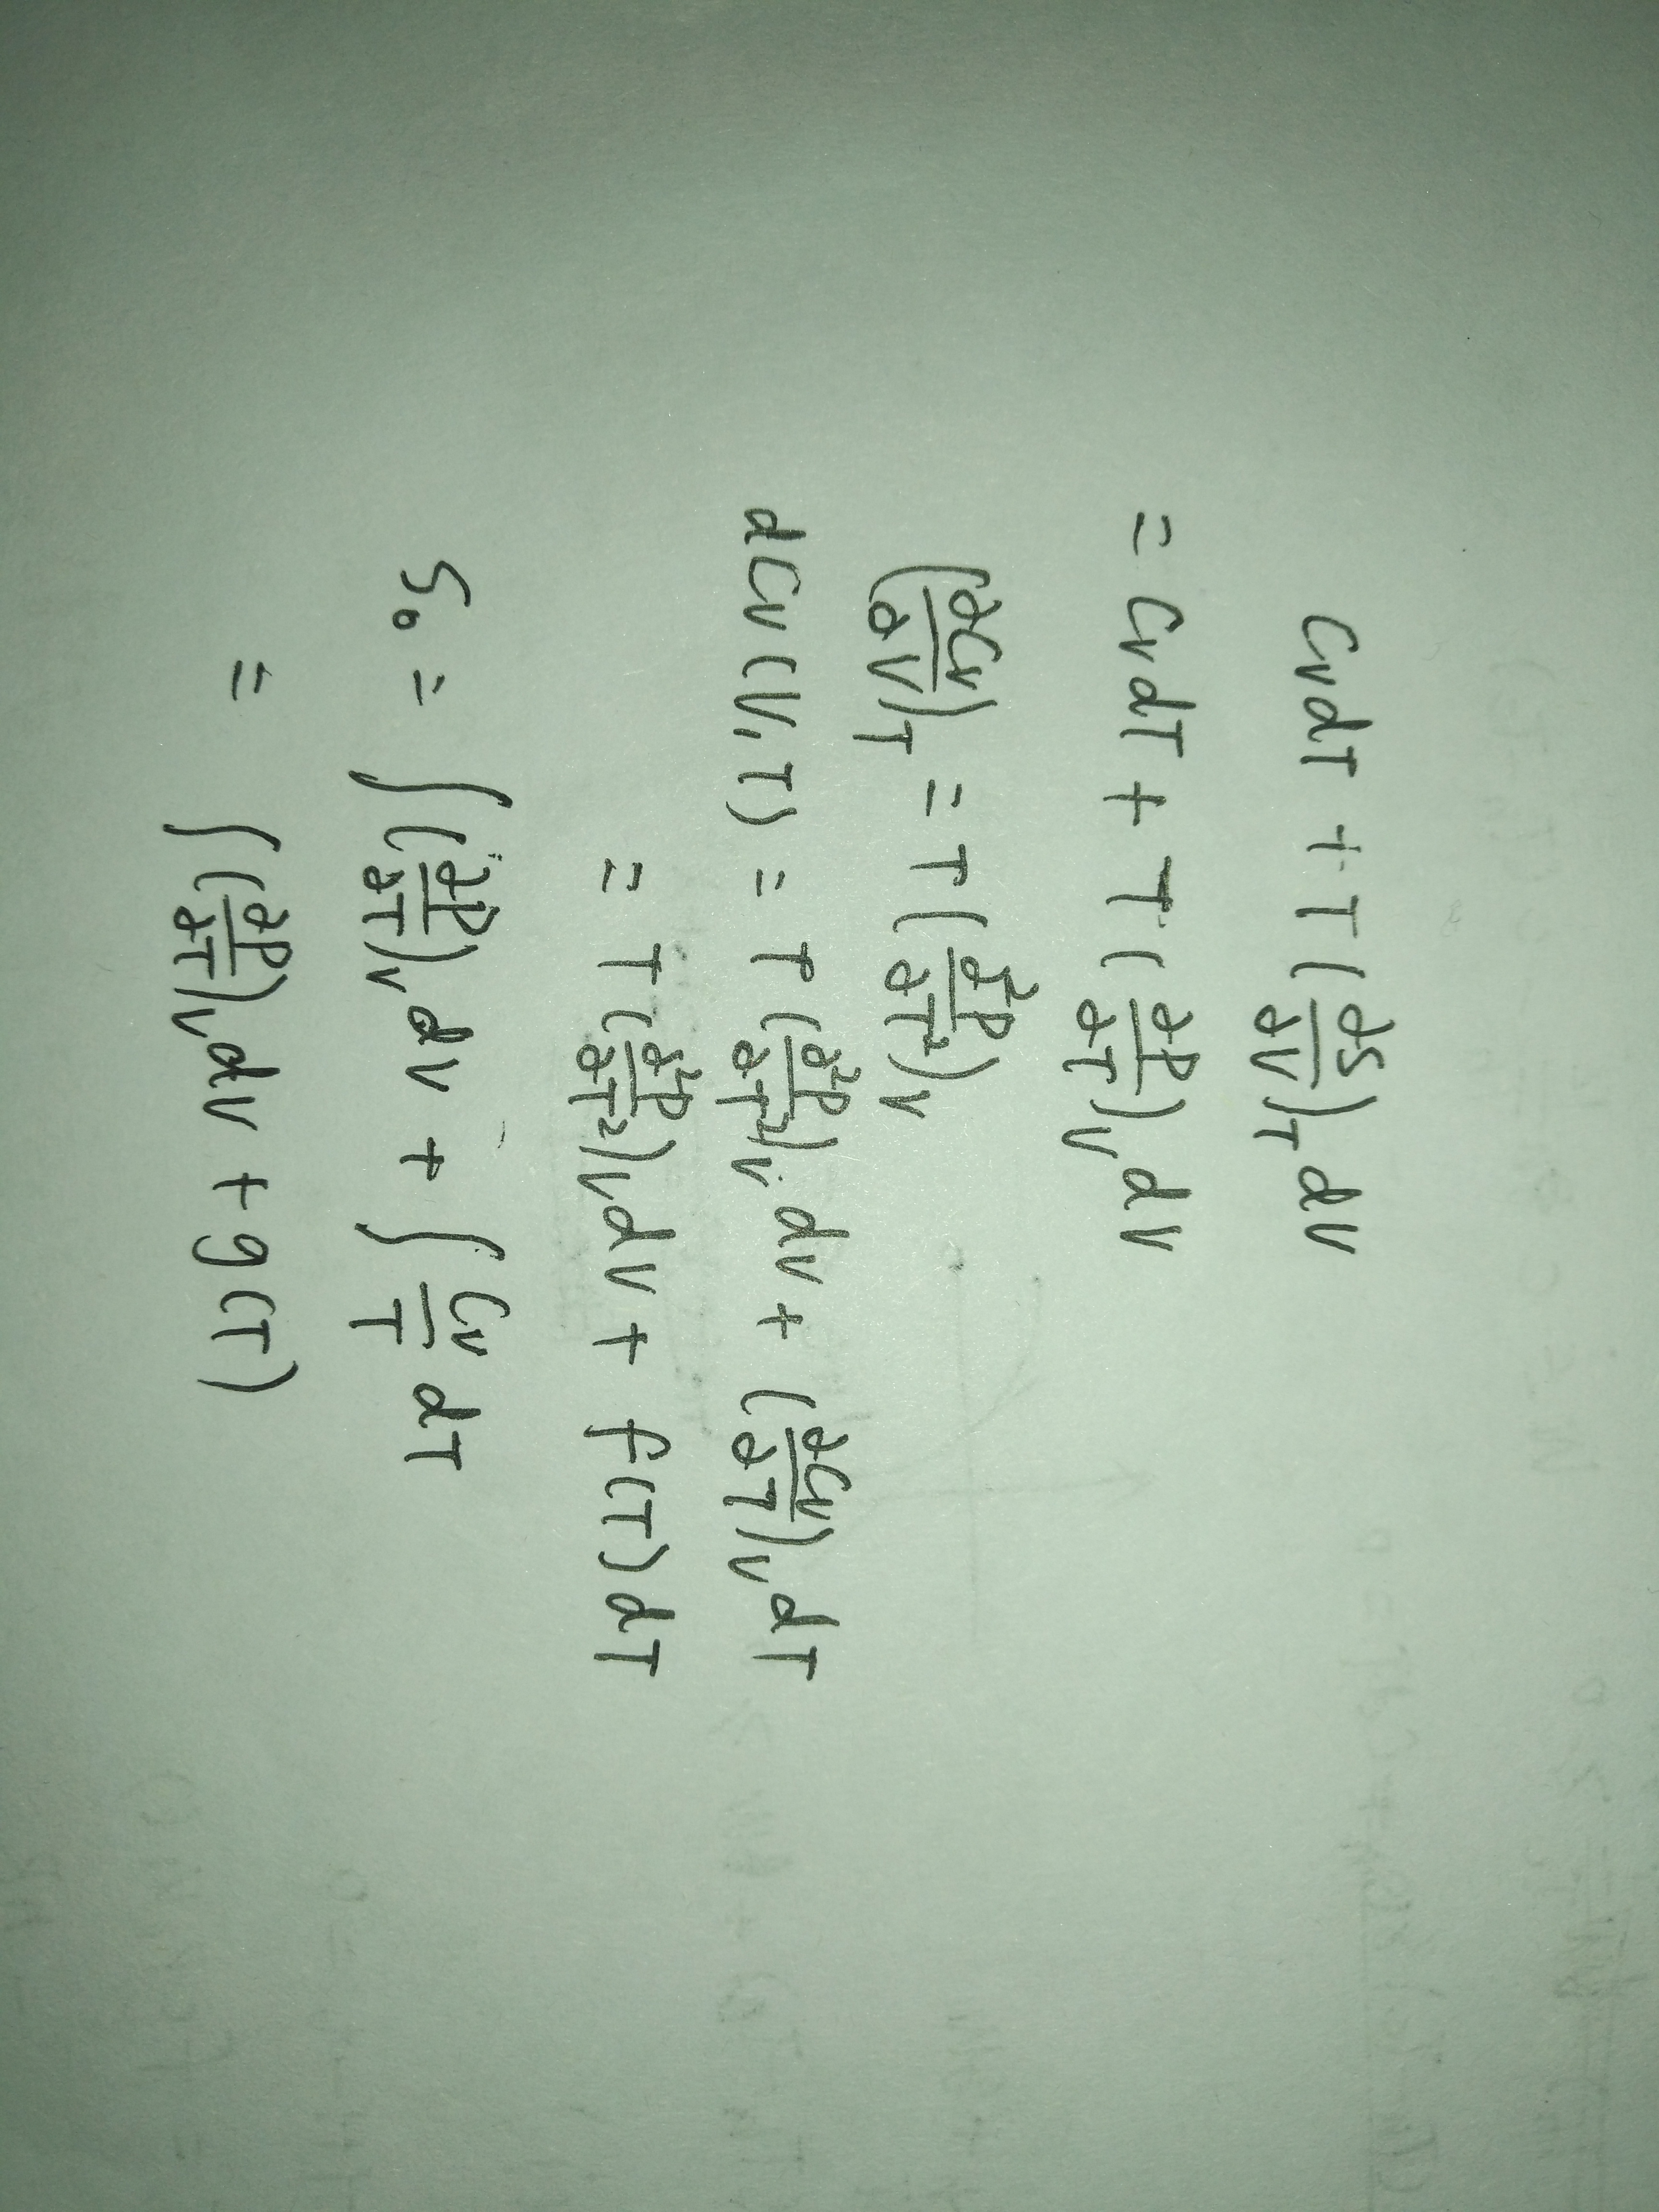 CvdT + T(∂S/∂V)_T dV
= CvdT + T(∂P/∂T)_V dV
(∂Cv/∂V)_T = T(∂²P/∂T²)_V
dCv(V,T) = T(∂²P/∂T²)_V dV + (∂Cv/∂T)_V dT
= T(∂²P/∂T²)_V dV + f(T)dT
S₀ = ∫(∂P/∂T)_V dV + ∫ Cv/T dT
= ∫(∂P/∂T)_V dV + g(T)